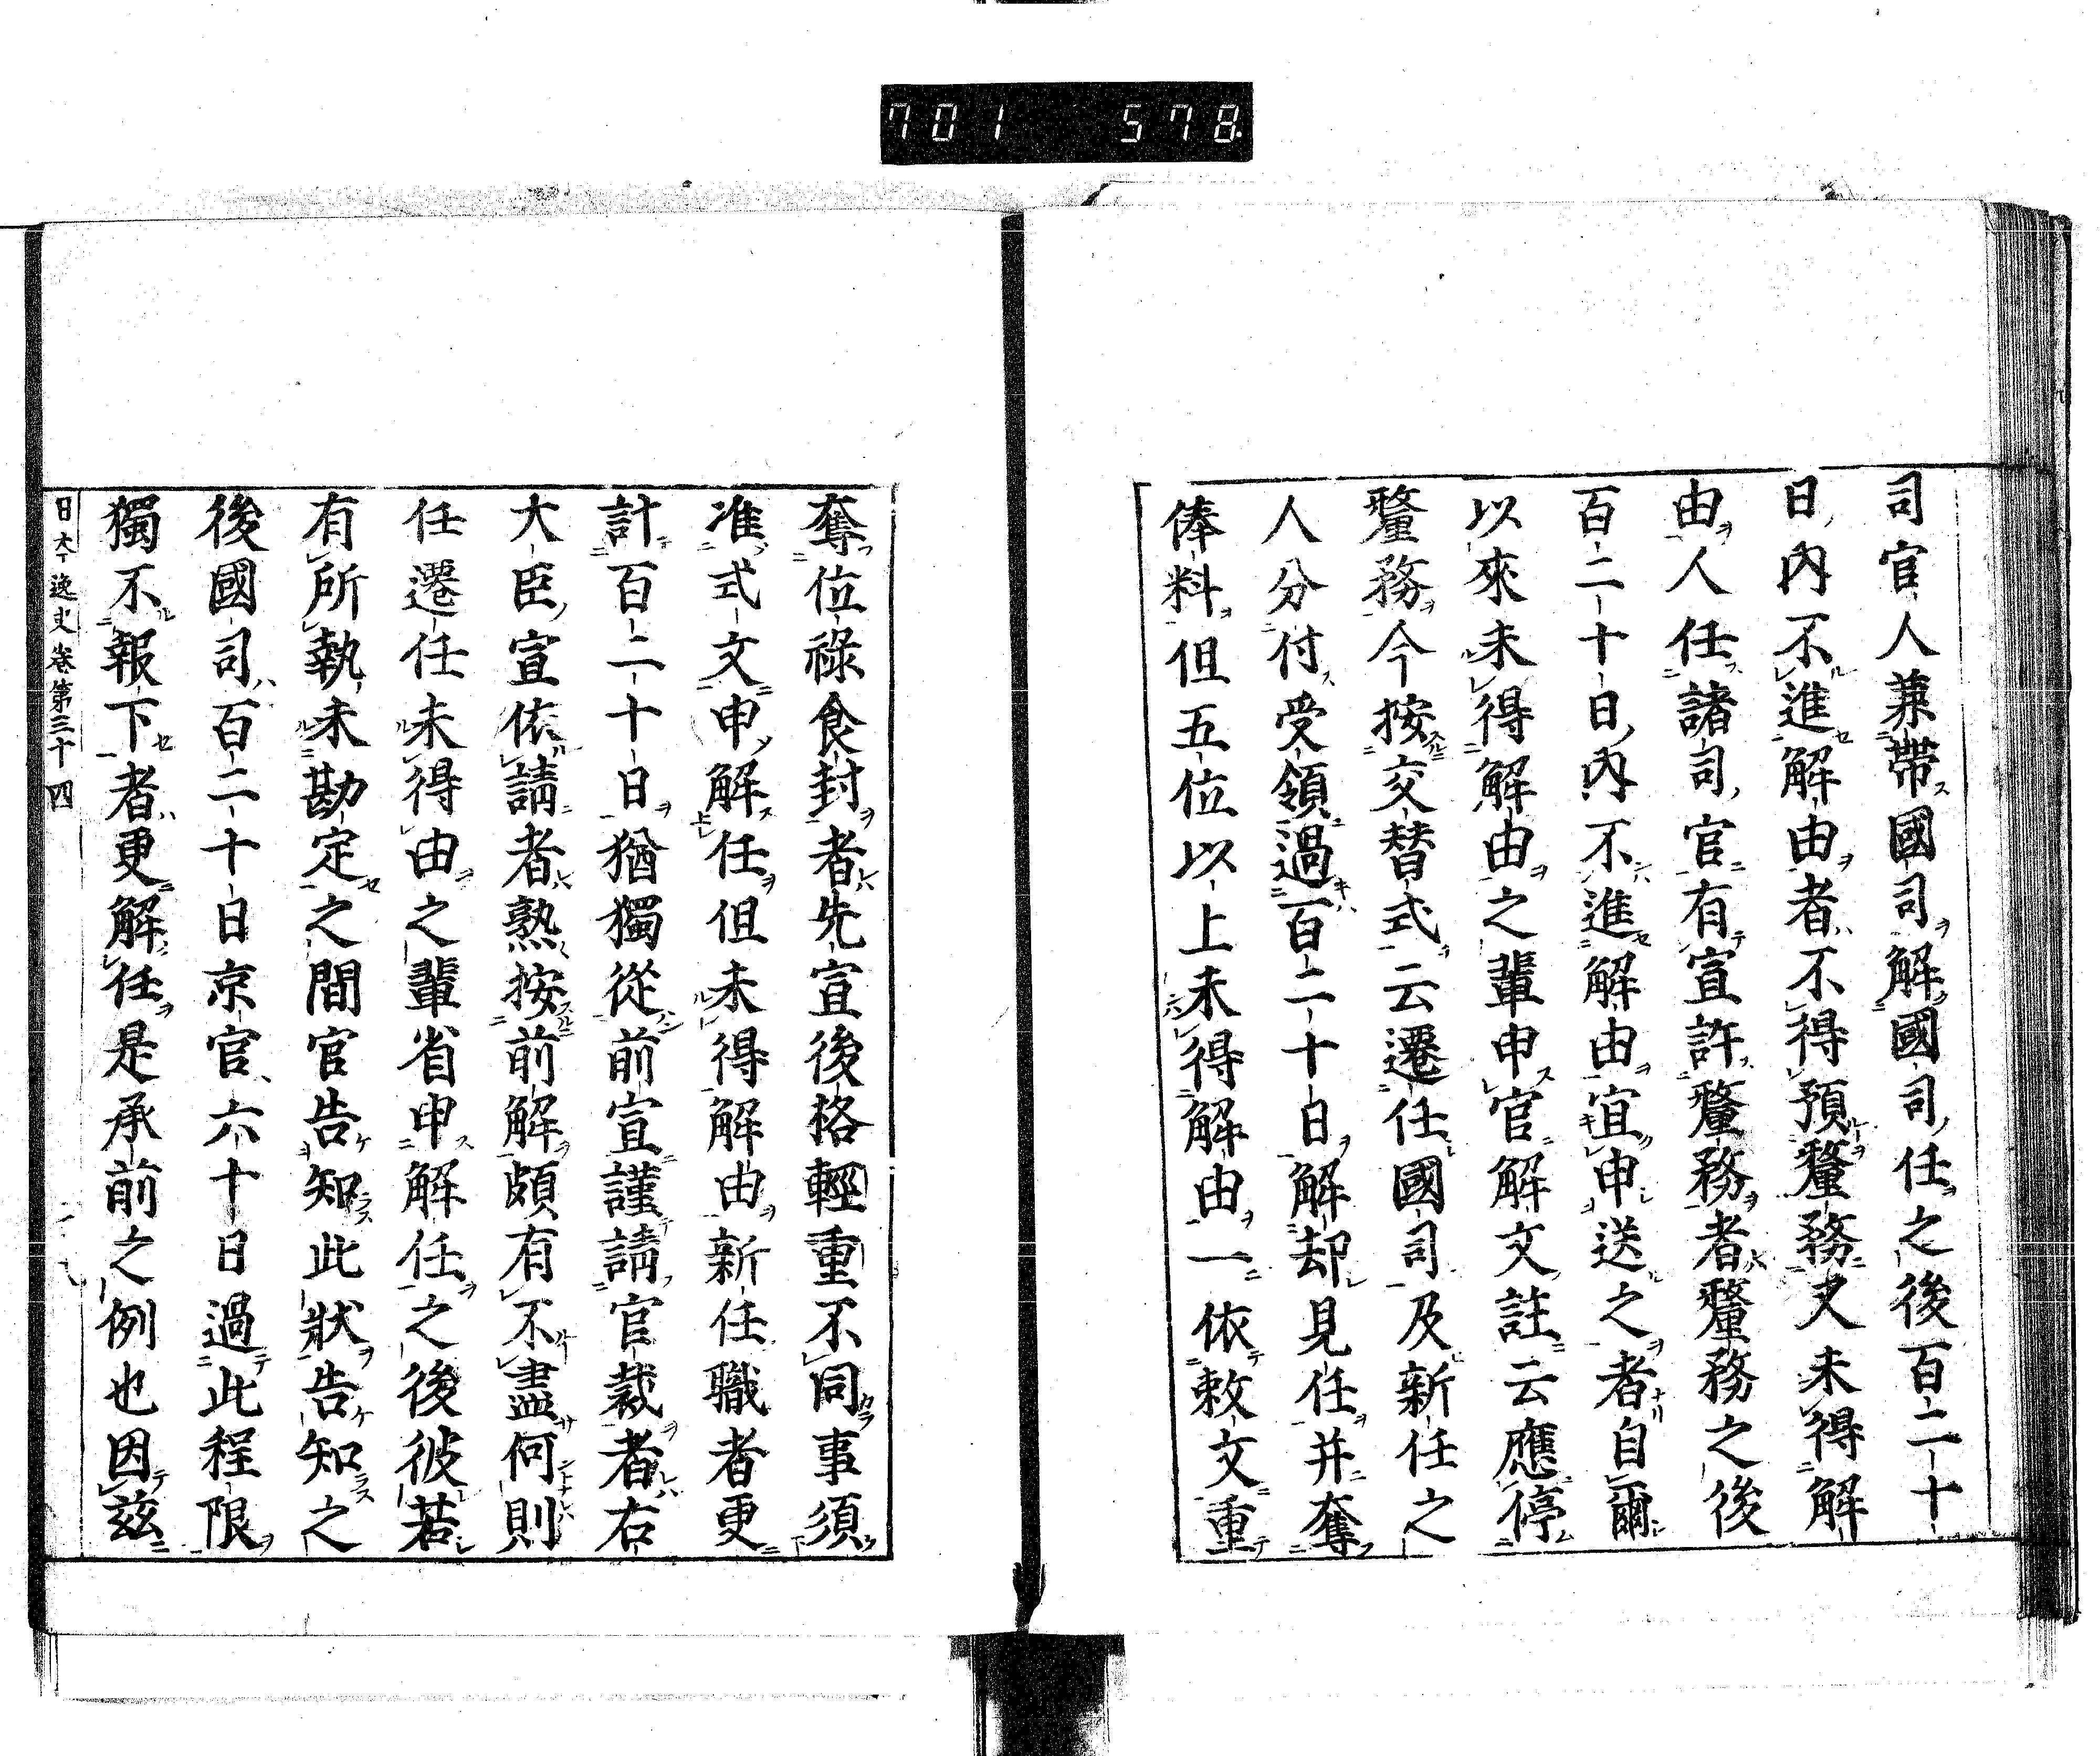 701 578
司官人兼帶國司解國司任之後百二十
日內不進解由者不得預釐務又未得解
由人任諸司官有宣許釐務者釐務之後
百二十日內不進解由宜申送之者自爾
以來未得解由之輩申官解文註云應停
釐務今按交替式云遷任國司及新任之
人分付受領過百二十日解却見任并奪
俸料但五位以上未得解由一依敕文重
奪位祿食封者先宣後格輕重不同事須
准式文申解任但未得解由新任職者更
計百二十日猶獨從前宣謹請官裁者右
大臣宣依請者熟按前解頗有不盡何則
任遷任未得由之輩省申解任之後彼若
有所執未勘定之間官告知此狀告知之
後國司百二十日京官六十日過此程限
獨不報下者更解任是承前之例也因茲
日本逸史卷第三十四